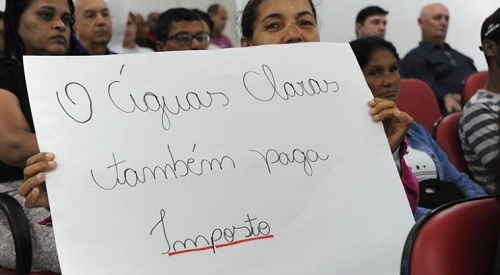 O Águas Claras
também paga
Imposto